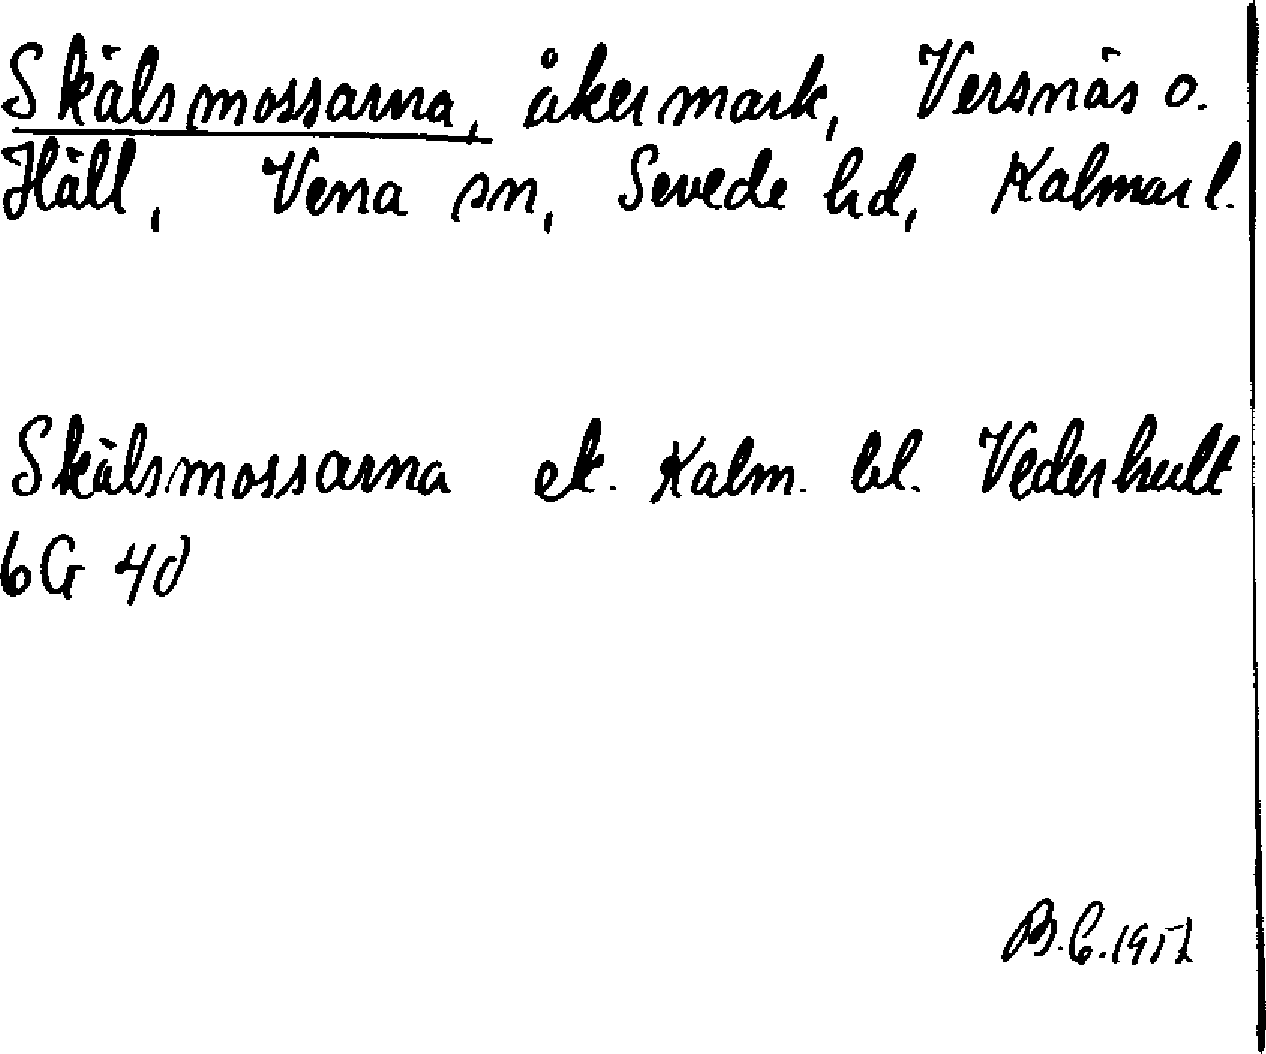 Skälsmossarna, åkermark, Versnäs o.
Häll, Vena sn, Sevede hd, Kalmar l.
Skälsmossarna ek. Kalm. bl. Vederhult
6G 4d
B.C. 1952